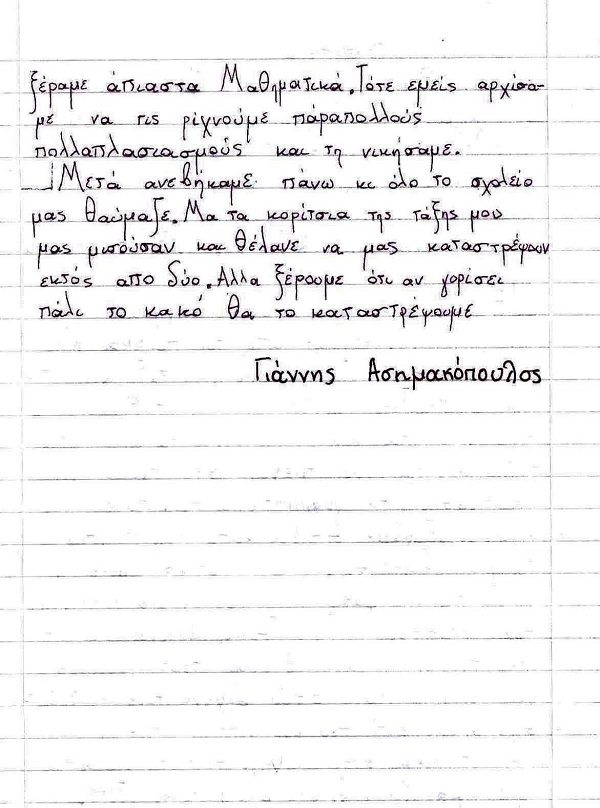 ξέραμε άπιαστα Μαθηματικά. Τότε εμείς αρχίσα-
με να τις ρίχνούμε πάραπολλούς
πολλαπλασιασμούς και τη νικήσαμε.
Μετά ανεβήκαμε πάνω κι όλο το σχολείο
μας θαύμαζε. Μα τα κορίτσια της τάξης μου
μας μισούσαν και θέλανε να μας καταστρέψουν
εκτός απο δύο. Αλλα ξέρουμε ότι αν γορίσει
πάλι το κακό θα το καταστρέψουμε
Γιάννης Ασημακόπουλος